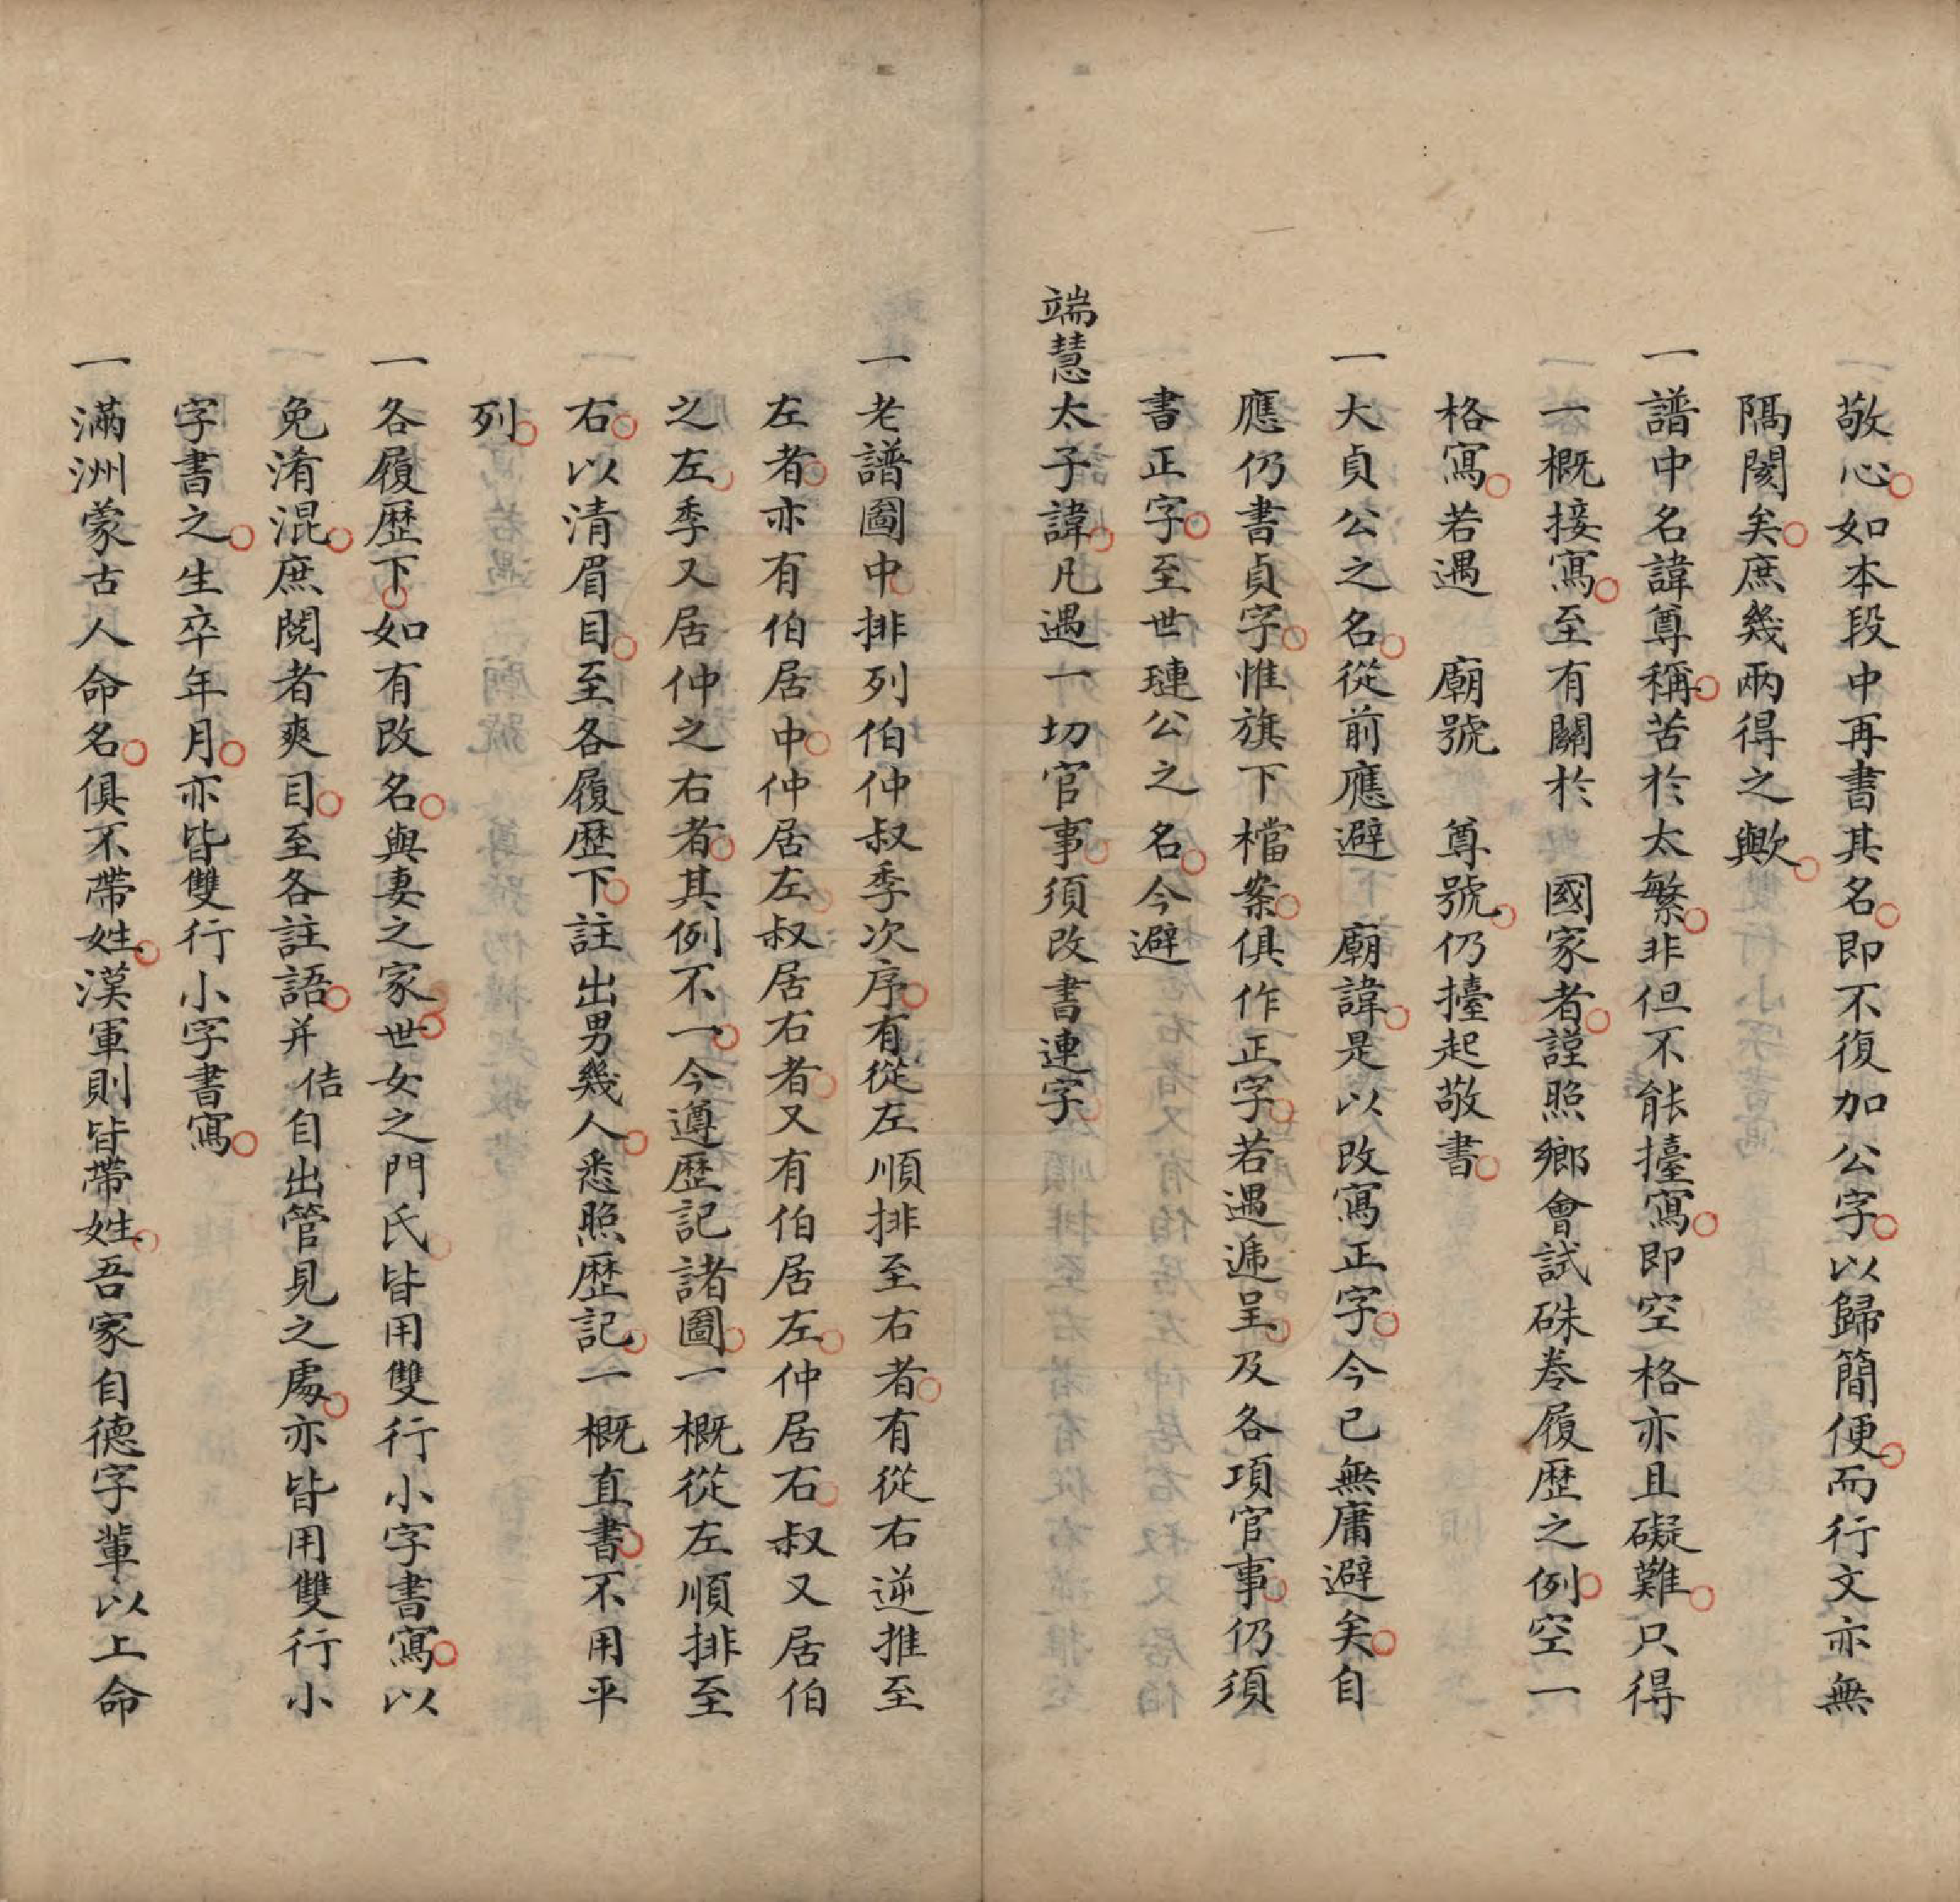 敬心如本段中再書其名即不復加公字以歸簡便而行文亦無
隔閡矣庶幾兩得之歟
一譜中名諱尊稱苦於太繁非但不能擡寫即空格亦且礙難只得
一概接寫至有關於　國家者謹照鄉會試硃卷履歷之例空一
格寫若遇　廟號　尊號仍擡起敬書
一大貞公之名從前應避　廟諱是以改寫正字今已無庸避矣自
應仍書貞字惟旗下檔案俱作正字若遇遞呈及各項官事仍須
書正字至世璉公之名今避
端慧太子諱凡遇一切官事須改書連字
一老譜圖中排列伯仲叔季次序有從左順排至右者有從右逆推至
左者亦有伯居中仲居左叔居右者又有伯居左仲居右叔又居伯
之左季又居仲之右者其例不一今遵歷記諸圖一概從左順排至
右以清眉目至各履歷下註出男幾人悉照歷記一概直書不用平
列
一各履歷下如有改名與妻之家世女之門氏皆用雙行小字書寫以
免淆混庶閱者爽目至各註語并佶自出管見之處亦皆用雙行小
字書之生卒年月亦皆雙行小字書寫
一滿洲蒙古人命名俱不帶姓漢軍則皆帶姓吾家自德字輩以上命